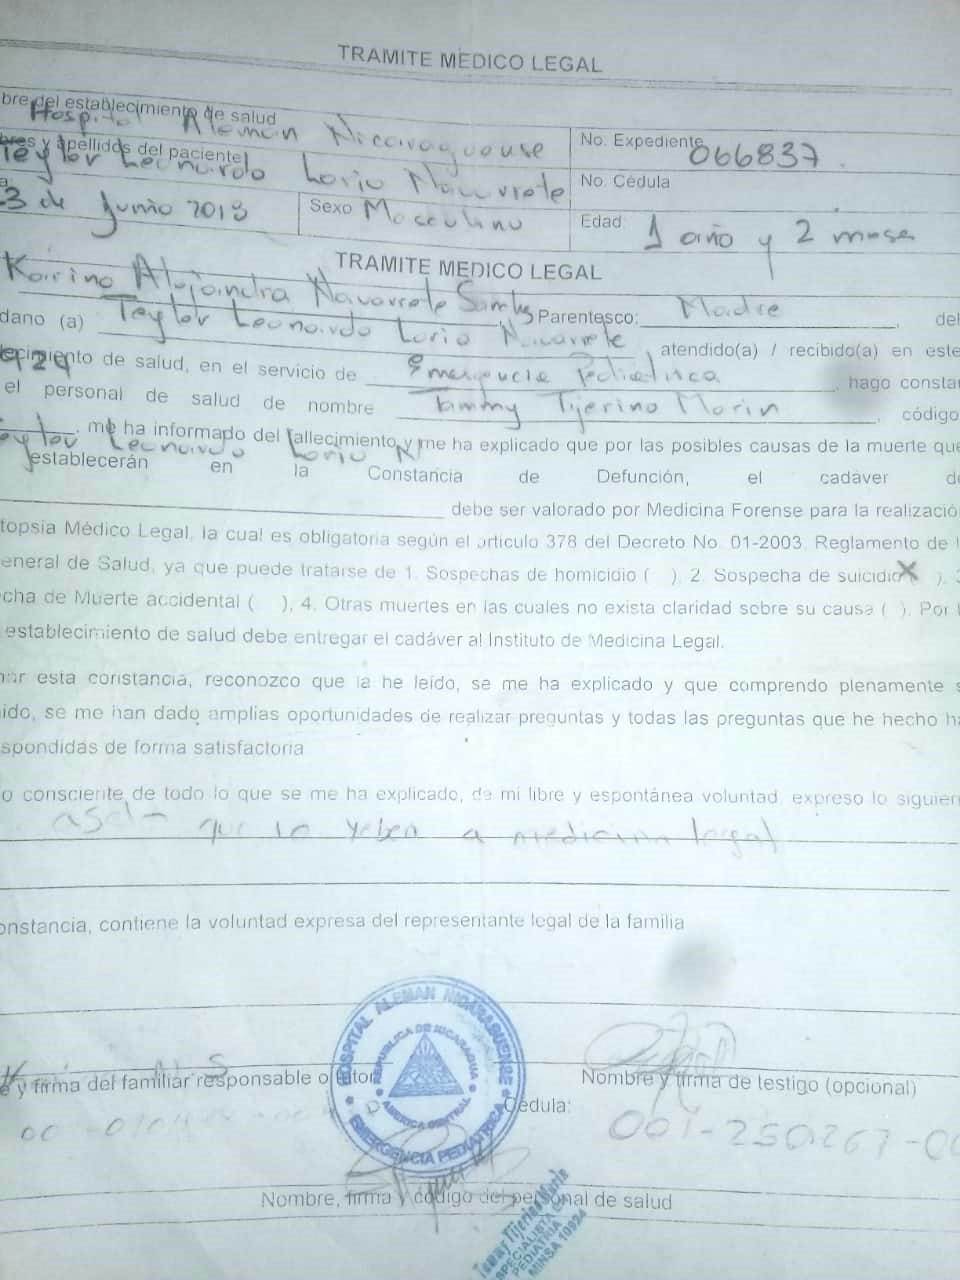 TRAMITE MEDICO LEGAL
bre del establecimiento de salud
Hospital Alemán Nicaraguense
No. Expediente 066837.
bres y apellidos del paciente
Teylor Leonardo Lorio Navarrete
No. Cédula
3 de Junio 2018
Sexo Masculino
Edad 1 año y 2 meses
TRAMITE MEDICO LEGAL
Alejandra Navarrete
Parentesco: Madre, del
dano (a) Teylor Leonardo Lorio Navarrete, atendido(a) / recibido(a) en este
lecimiento de salud, en el servicio de Emergencia Pediatrica, hago constar
el personal de salud de nombre Tammy Tijerino Marin, código
, me ha informado del fallecimiento y me ha explicado que por las posibles causas de la muerte que
Teylor Leonardo Lorio N
establecerán en la Constancia de Defunción, el cadáver de
debe ser valorado por Medicina Forense para la realizació
topsia Médico Legal, la cual es obligatoria según el artículo 378 del Decreto No. 01-2003. Reglamento de l
eneral de Salud, ya que puede tratarse de 1. Sospechas de homicidio ( ), 2. Sospecha de suicidio X ), 3
cha de Muerte accidental ( ), 4. Otras muertes en las cuales no exista claridad sobre su causa ( ). Por l
establecimiento de salud debe entregar el cadáver al Instituto de Medicina Legal.
nar esta constancia, reconozco que la he leído, se me ha explicado y que comprendo plenamente s
nido, se me han dado amplias oportunidades de realizar preguntas y todas las preguntas que he hecho ha
spondidas de forma satisfactoria
o consciente de todo lo que se me ha explicado, de mi libre y espontánea voluntad, expreso lo siguien
que lo a medicina legal
onstancia, contiene la voluntad expresa del representante legal de la familia
HOSPITAL ALEMAN NICARAGUENSE
REPUBLICA DE NICARAGUA
AMERICA CENTRAL
EMERGENCIA PEDIATRICA
e y firma del familiar responsable o tutor
Nombre y firma de testigo (opcional)
Cédula:
001-250267-00
Nombre, firma y código del personal de salud
ESPECIALISTA EN
PEDIATRIA
MINSA 10924